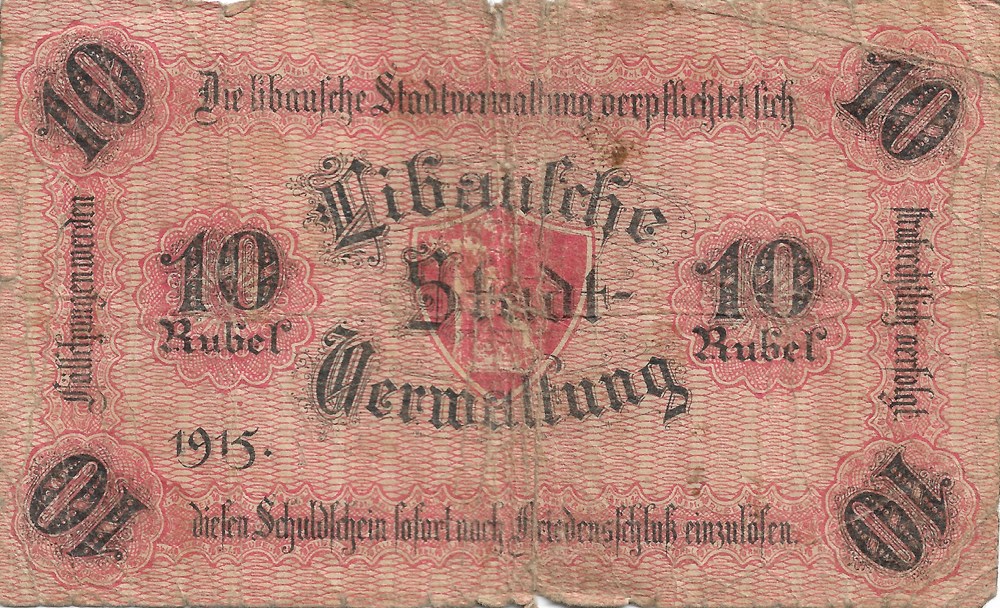 10
10
Die libausche Stadtverwaltung verpflichtet sich
Libausche
Stadt-
Verwaltung
10
Rubel
10
Rubel
Fälschungen werden
strafrechtlich verfolgt
1915.
diesen Schuldschein sofort nach Friedensschluß einzulösen.
10
10